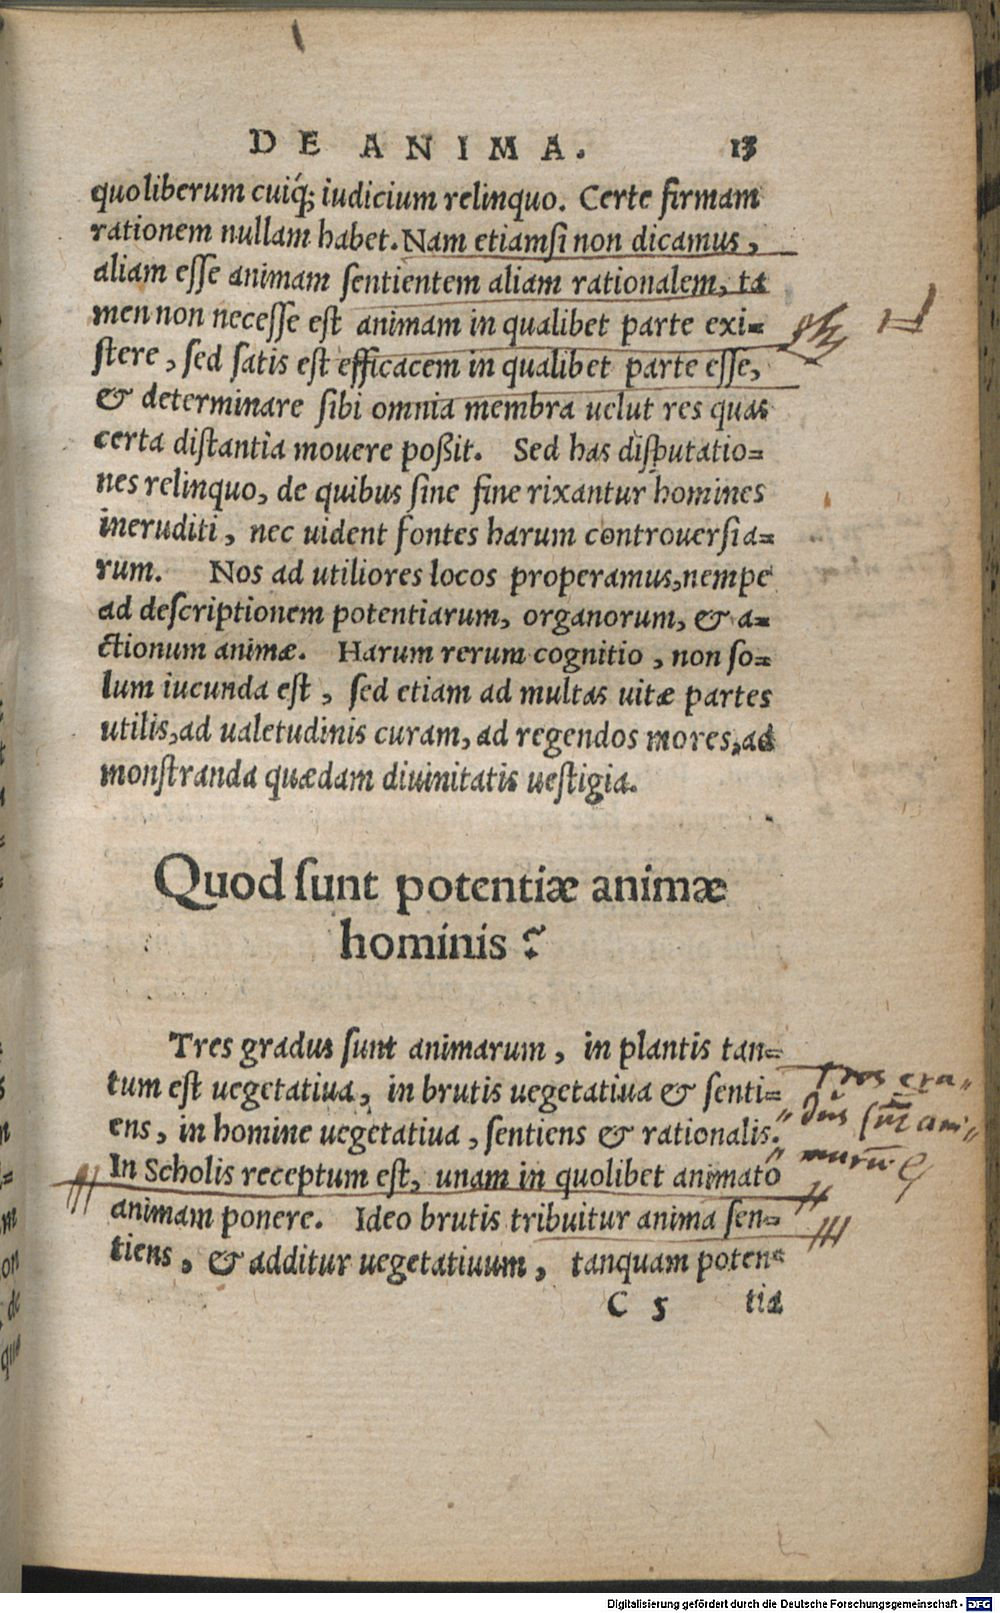 DE ANIMA. 13
quo liberum cuiq́; iudicium relinquo. Certe firmam
rationem nullam habet. Nam etiamsi non dicamus,
aliam eſſe animam ſentientem aliam rationalem, ta
men non neceſſe eſt animam in qualibet parte exi=
ſtere, ſed ſatis eſt efficacem in qualibet parte eſſe,
& determinare ſibi omnia membra uelut res quas
certa diſtantia mouere poßit. Sed has diſputatio=
nes relinquo, de quibus ſine fine rixantur homines
ineruditi, nec uident fontes harum controuerſia=
rum. Nos ad utiliores locos properamus, nempe
ad deſcriptionem potentiarum, organorum, & a=
ctionum animæ. Harum rerum cognitio, non ſo=
lum iucunda eſt, ſed etiam ad multas uitæ partes
utilis, ad ualetudinis curam, ad regendos mores, ad
monſtranda quædam diuinitatis ueſtigia.
Quod ſunt potentiæ animæ
hominis?
Tres gradus ſunt animarum, in plantis tan=
tum eſt uegetatiua, in brutis uegetatiua & ſenti=
ens, in homine uegetatiua, ſentiens & rationalis.
In Scholis receptum eſt, unam in quolibet animato
animam ponere. Ideo brutis tribuitur anima ſen=
tiens, & additur uegetatiuum, tanquam poten=
C 5 tia
Tres gra„
„dus ſūt ani„
„marū
Digitalisierung gefördert durch die Deutsche Forschungsgemeinschaft - DFG